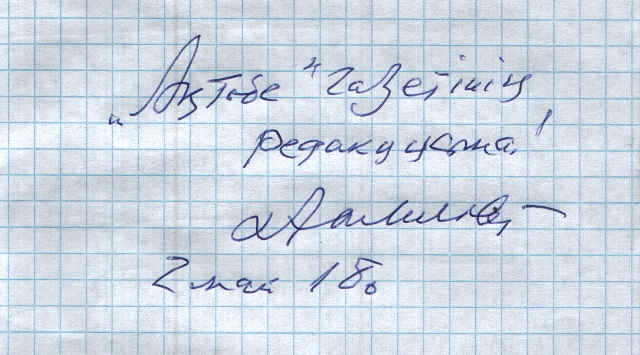 „Ақтөбе" газетінің
редакциясына!
2 май 18